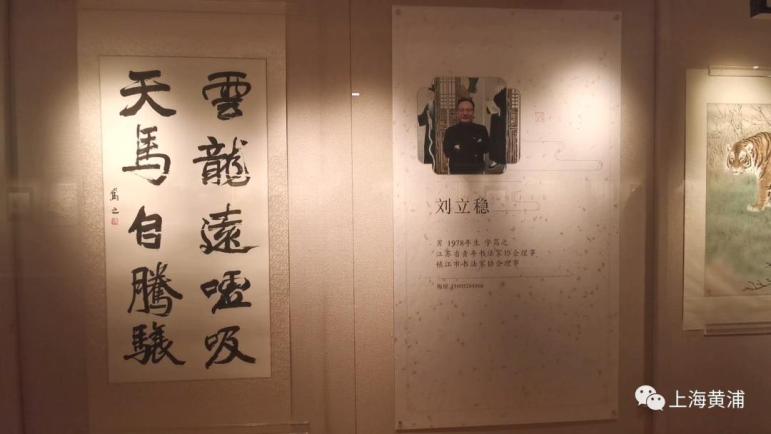 雲龍遠噓吸
天馬自騰驤
刘立稳
男 1978年生 字之
江苏省青年书法家协会理事
镇江市书法家协会理事
上海黄浦